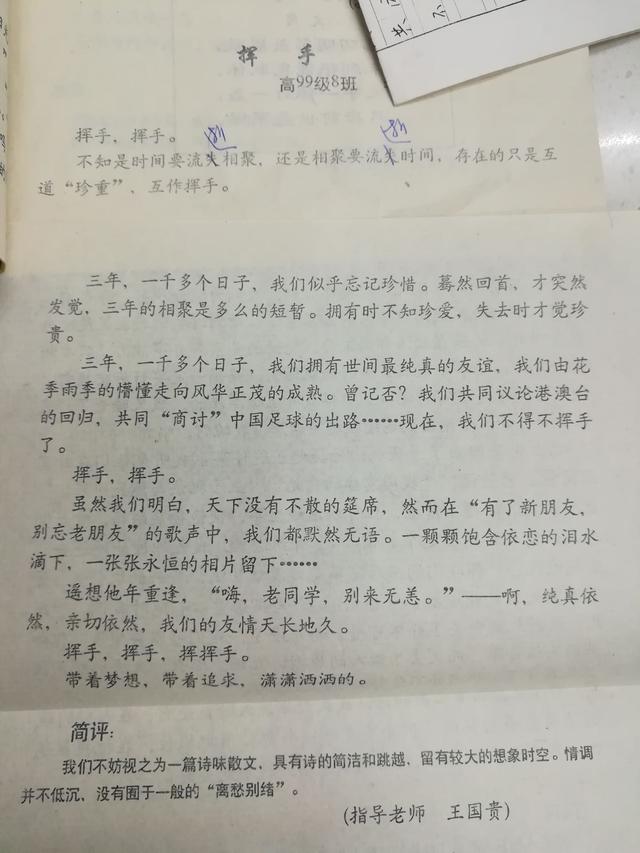 挥 手
高99级8班
挥手，挥手。
不知是时间要流失相聚，还是相聚要流失时间，存在的只是互
道“珍重”，互作挥手。
三年，一千多个日子，我们似乎忘记珍惜。蓦然回首，才突然
发觉，三年的相聚是多么的短暂。拥有时不知珍爱，失去时才觉珍
贵。
三年，一千多个日子，我们拥有世间最纯真的友谊，我们由花
季雨季的懵懂走向风华正茂的成熟。曾记否？我们共同议论港澳台
的回归，共同“商讨”中国足球的出路……现在，我们不得不挥手
了。
挥手，挥手。
虽然我们明白，天下没有不散的筵席，然而在“有了新朋友，
别忘老朋友”的歌声中，我们都默然无语。一颗颗饱含依恋的泪水
滴下，一张张永恒的相片留下……
遥想他年重逢，“嗨，老同学，别来无恙。”——啊，纯真依
然，亲切依然，我们的友情天长地久。
挥手，挥手，挥挥手。
带着梦想，带着追求，潇潇洒洒的。
简评：
我们不妨视之为一篇诗味散文，具有诗的简洁和跳越，留有较大的想象时空。情调
并不低沉，没有囿于一般的“离愁别绪”。
(指导老师 王国贵)